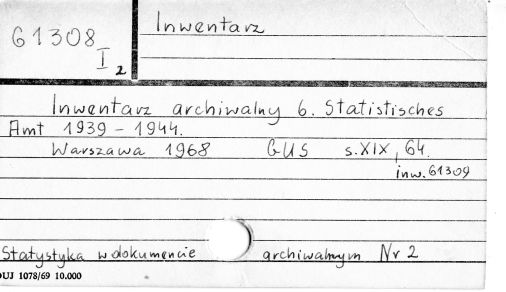 61308
I
2
Inwentarz
Inwentarz archiwalny b. Statistisches
Amt 1939 - 1944.
Warszawa 1968 GUS s.XIX, 64.
inw. 61309
Statystyka w dokumencie archiwalnym Nr 2
DUJ 1078/69 10.000